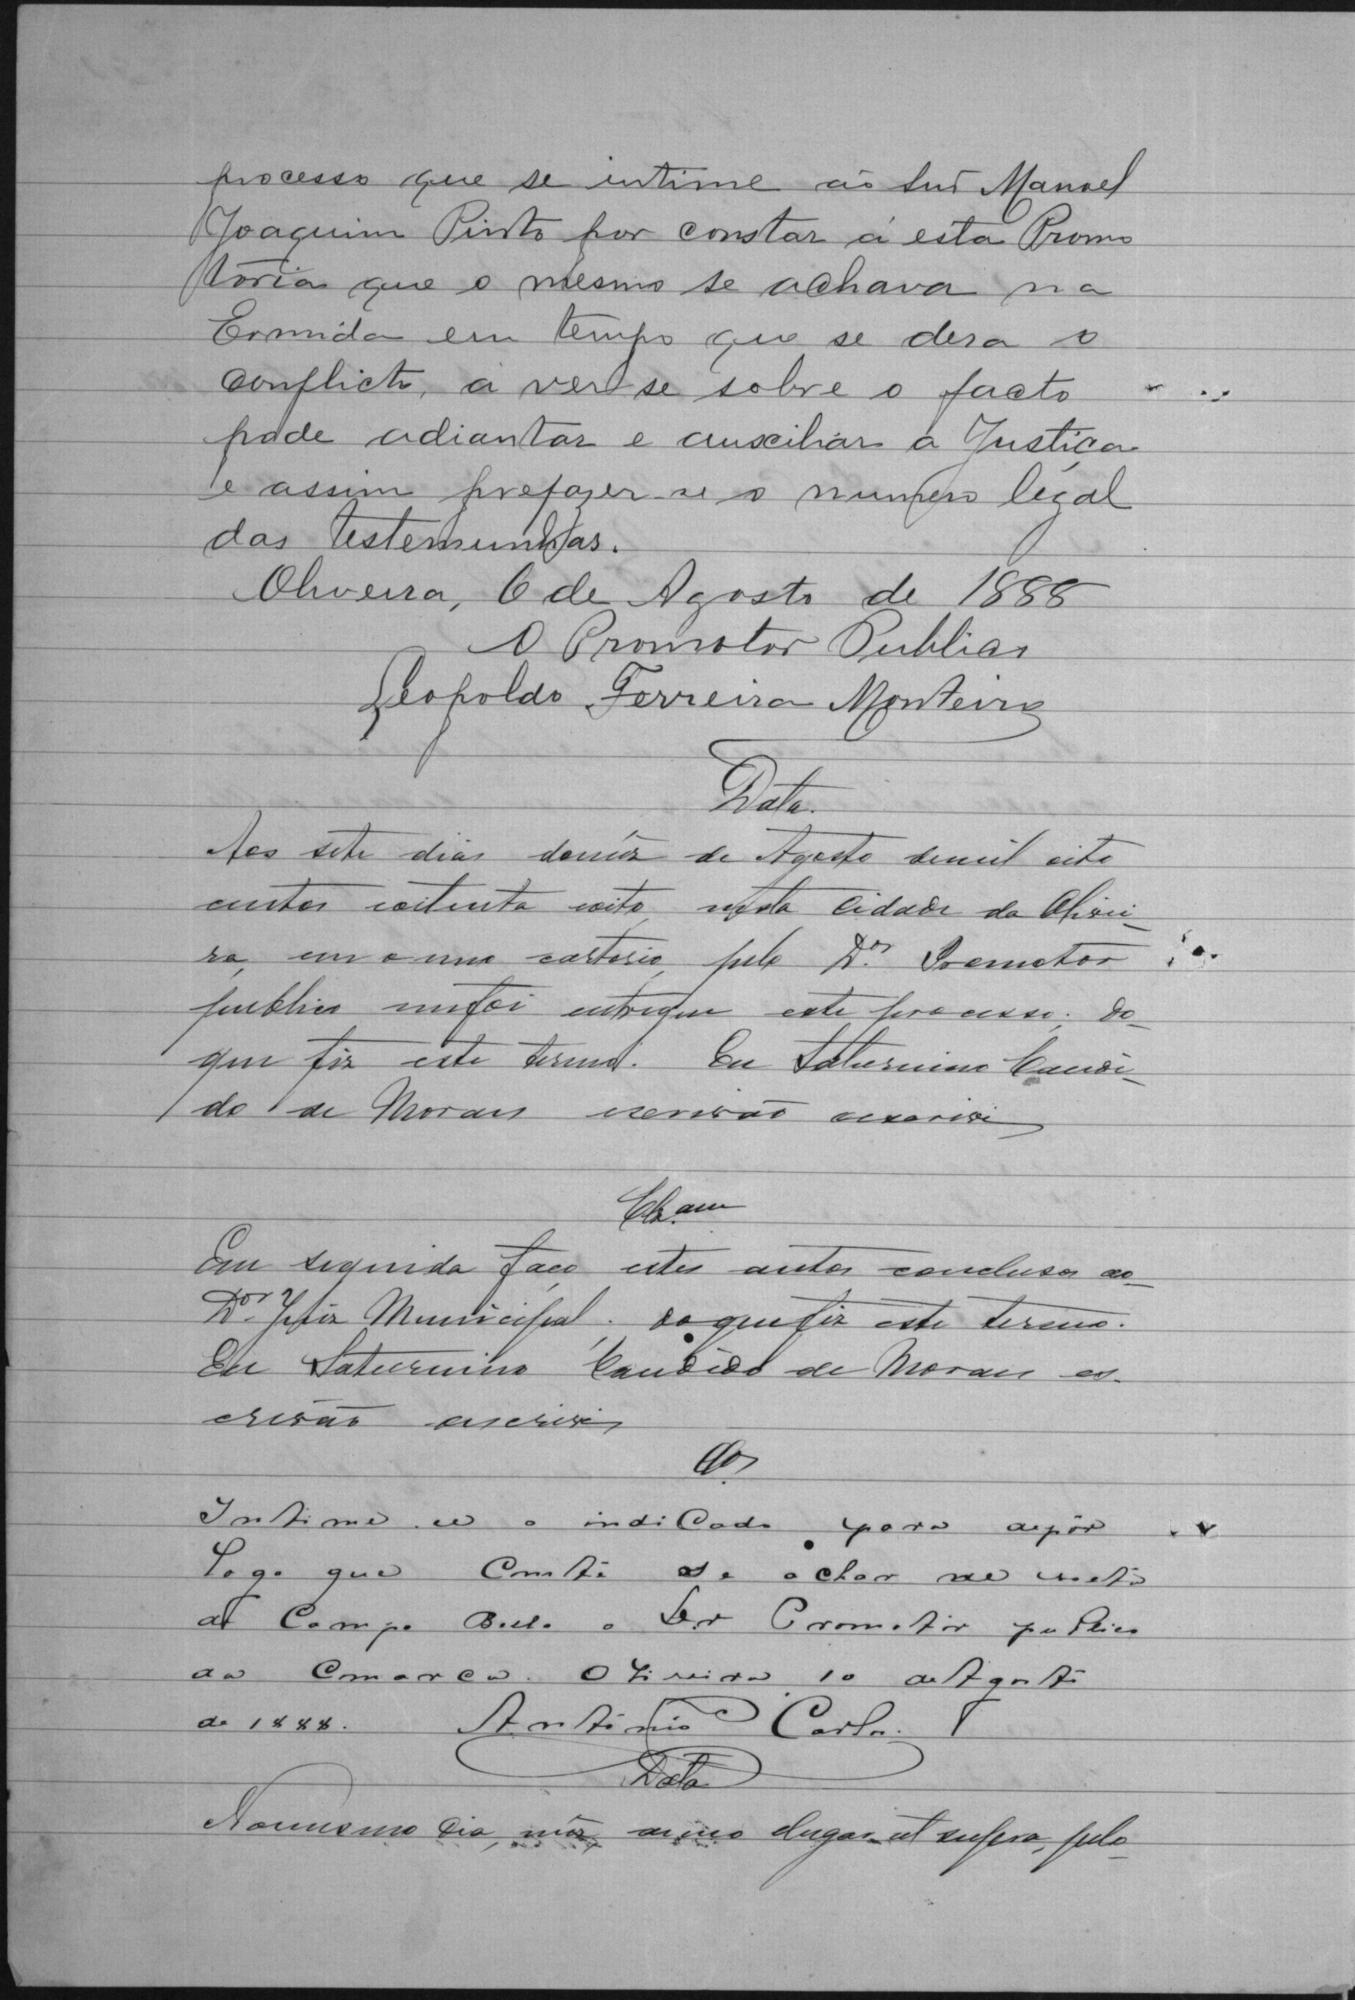 processo que se intime ao Snr Manoel
Joaquim Pinto por constar á esta Promo
toria que o mesmo se achava na
Ermida em tempo que se dera o
conflicto, a ver se sobre o facto
pode adiantar e auxiliar a Justiça
e assim prefazer-se o numero legal
das testemunhas.
Oliveira, 6 de Agosto de 1888
O Promotor Publico
Leopoldo Ferreira Monteiro
Data.
Aos sete dias domêz de Agosto demil oito
centos eoitenta eoito, nesta Cidade da Olivei-
ra, em o meu cartorio, pelo Dr. Promotor
publico mefoi entregue este processo; do-
que fiz este termo. Eu Saturnino Candi-
do de Moraes escrivão oescrivi
Clz.am
Em seguida faço estes autos conclusos ao-
Dor. Juiz Municipal; doquefiz este termo.
Eu Saturnino Candido de Moraes es-
crivão oescrivi
Clos
Intime-se o indicado para depôr
logo que conste se achar
de Campo Bello o Snr Promotor publico
da Comarca. Oliveira, 10 de Agosto
de 1888. Antonio Carlos
Data
Nomesmo dia, mêz anno elugar ut supra, pelo-